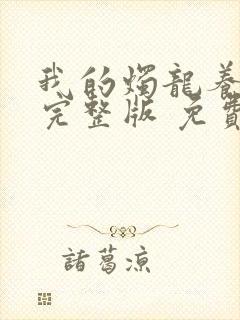 我的燭龍養
完整版 免費
諸葛涼